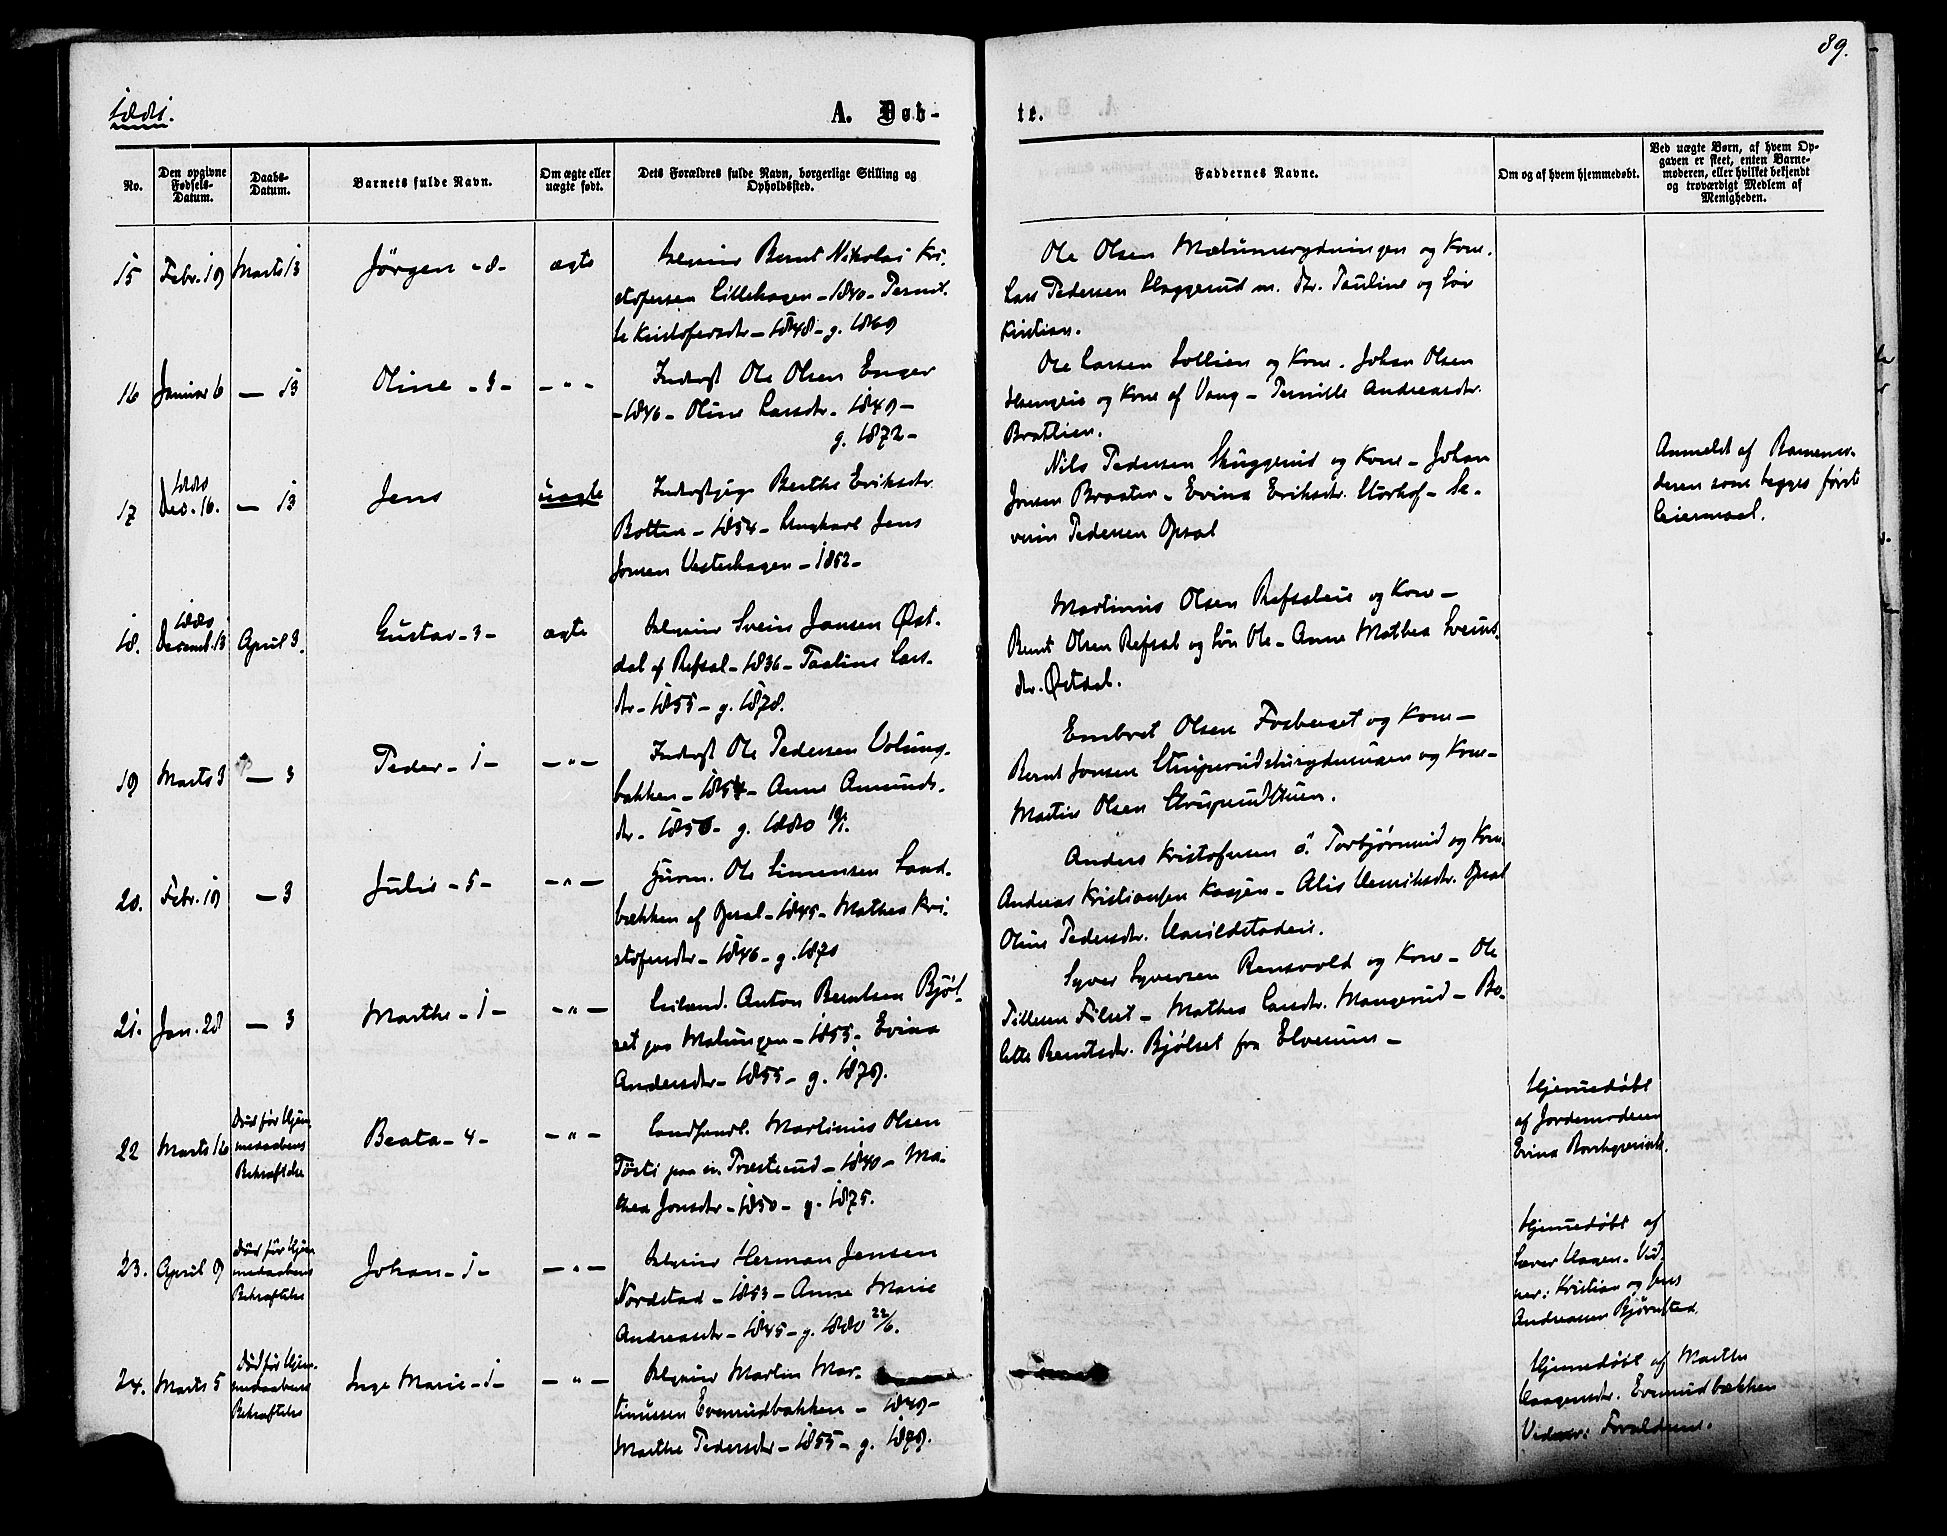 89.
1881.
A. Døb-
te.
No.
Den opgivne Fødsels-Datum.
Daabs-Datum.
Barnets fulde Navn.
Om ægte eller uægte født.
Dets Forældres fulde Navn, borgerlige Stilling og Opholdssted.
Faddernes Navne.
Om og af hvem hjemmedøbt.
Ved uægte Børn, af hvem Opgaven er skeet, enten Barnemoderen, eller hvilket bekjendt og troværdigt Medlem af Menigheden.
15
Febr. 19
Marts 13
Jörgen - 8 -
ægte
Selveier Bernt Nikolai Kri-
stofersen Lillehagen - 1840 - Pernil-
le Kristofersdtr - 1848 - g. 1869
Ole Olsen Mælumsrydningen og Kone.
Lars Pedersen Skaggerud m. dtr. Pauline og Sön
Kristian.
16
Januar 6
— 13
Oline - 3 -
- " -
Inderst Ole Olsen Enger
- 1846 - Oline Larsdtr. 1849 -
g. 1872 -
Ole Larsen Sollien og Kone. Johan Olsen
og Kone af Vang - Pernille Andreasdtr.
Brattlien.
17
1880
Dec. 16.
— 13
Jens
uægte
Inderstpige Berthe Eriksdtr.
Botten - 1854 - Ungkarl Jens
Jonsen Vesterhagen - 1862 -
Nils Pedersen Skuggerud og Kone - Johan
Jonsen Braaten - Evina Eriksdtr. Storhof - Se-
verin Pedersen Opsal
Anmeldt af Barnemo-
deren som begges förste
Leiermaal.
18.
1880
Decemb. 13
April 3.
Gustav - 3 -
ægte
Selveier Svein Jansen Øst-
dal af Refsal - 1836 - Pauline Lars-
dtr - 1855 - g. 1878.
Martinus Olsen Refsaleie og Kone -
Bernt Olsen Refsal og Sön Ole - Anne Mathea Sveins-
dtr. Østdal.
19
Marts 3
— 3
Peder - 1 -
- " -
Inderst Ole Pedersen Volung-
bakken - 1854 - Anne Amunds-
dtr. - 1856 - g. 1880 19/1.
Embret Olsen Fosberget og Kone -
Bernt Jonsen og Kone -
Martin Olsen
20.
Febr. 19
— 3
Julie - 5 -
- " -
Husm. Ole Simensen Sand-
bækken af Opsal - 1845 - Mathea Kri-
stofersdtr - 1846 - g. 1870
Anders Kristofersen ö. Torbjörnrud og Kone
Andreas Kristiansen Kasjen - Alis Henriksdtr. Opsal
Oline Pedersdtr. Harildstadeie.
21.
Jan. 28
— 3
Marthe - 1 -
- " -
Leilænd. Anton Berntsen Bjöl-
set paa Malungen - 1853 - Evina
Andersdtr - 1855 - g. 1879.
Syver Syversen Rensvold og Kone - Ole
Tillesen Filset - Mathea Larsdtr. Mangerud - Bo-
lette Berntsdtr. Bjölset fra Elverum -
22
Marts 16
Död för Hjem-
medaabens
Bekræftelse
Beata - 4 -
- " -
Landhandl. Martinus Olsen
Tösti paa en Præsterud - 1840 - Ma-
thea Jonsdtr - 1850 - g. 1875.
Hjemmedöbt
af Jordemoderen
Evina
23.
April 9
Död för Hjem-
medaabens
Bekræftelse
Johan - 1 -
- " -
Selveier Herman Jensen
Nordstad - 1853 - Anne Marie
Andreasdtr - 1845 - g. 1880 22/6.
Hjemmedöbt af
Lærer Hagen. Vid-
ner: Kristian og Jens
Andreassen Bjørnstad.
24.
Marts 5
Död för Hjem-
medaabens
Bekræftelse
Inge Marie - 1 -
- " -
Selveier Martin Mar-
tinussen Evenrudbakken - 1849 -
Marthe Pedersdtr - 1855 - g. 1879.
Hjemmedöbt af Marthe
Haagensdtr. Evenrudbakken
Vidner: Forældrene.